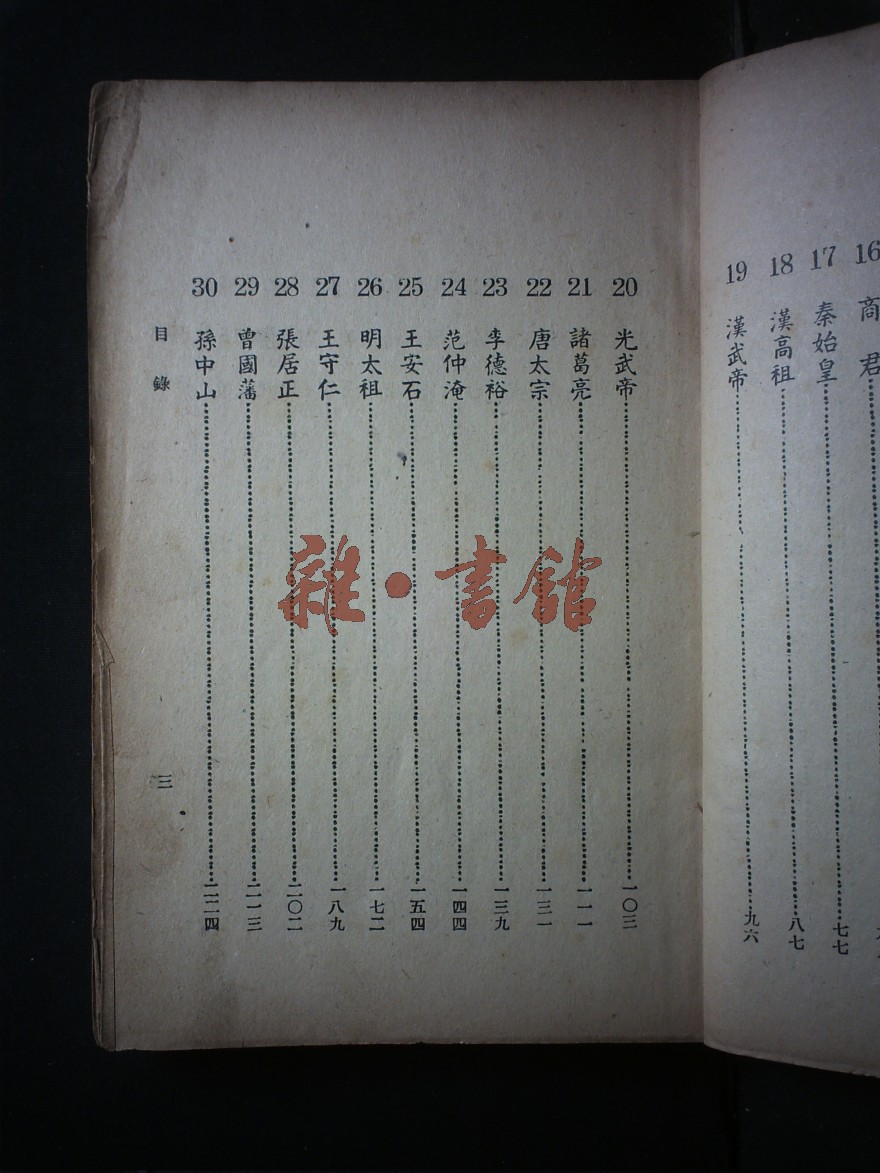 16 商君
17 秦始皇 七七
18 漢高祖 八七
19 漢武帝 九六
20 光武帝 一〇三
21 諸葛亮 一一一
22 唐太宗 一三一
23 李德裕 一三九
24 范仲淹 一四四
25 王安石 一五四
26 明太祖 一七二
27 王守仁 一八九
28 張居正 二〇二
29 曾國藩 二一三
30 孫中山 二二四
目錄
三
雜·書館